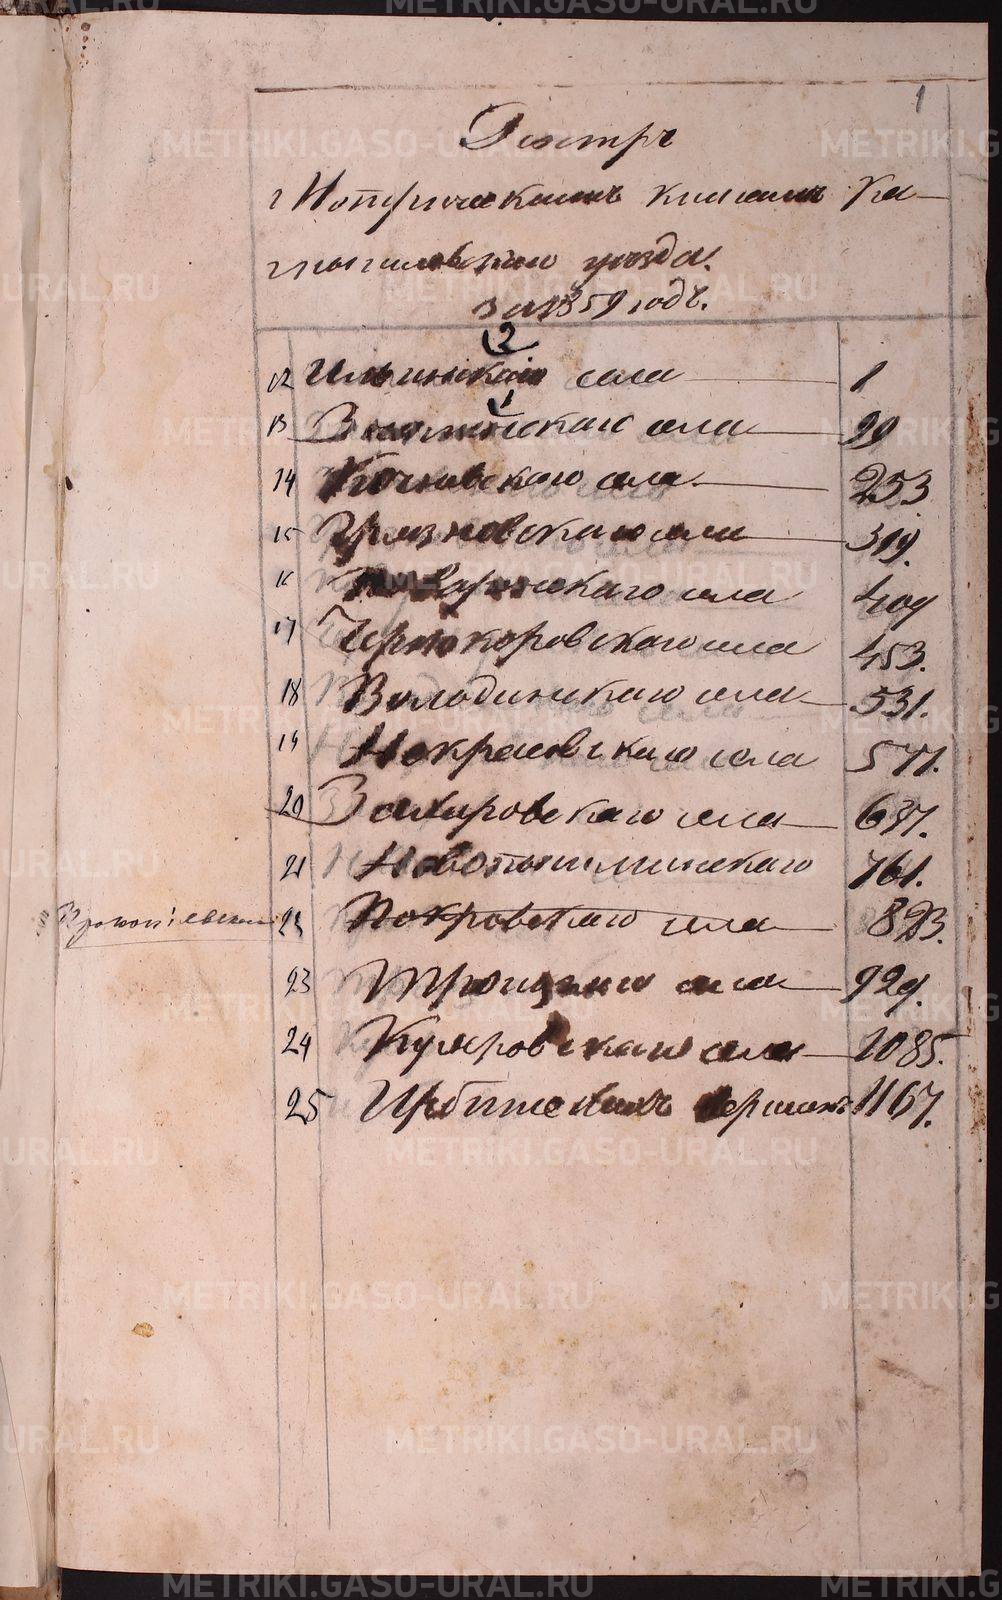 1
Реэстръ
Метрическимъ книгамъ Ка-
мышловскаго уезда.
за 1859 годъ.
2
12 Ильинскаго села 1
1
13 Знаменскаго села 99
14 Кочневскаго села 253.
15 Грязновскаго села 319.
16 Поварскаго села 409
17 Чернокоровскаго села 453.
18 Володинскаго села 531.
19 Некрасовскаго села 577.
20 Захаровскаго села 637.
21 Новопышминскаго 761.
Прокопiевскаго 22 Покровскаго села 893.
23 Троицкаго села 929.
24 Куяровскаго села 1085.
25 Ирбитскихъ вершинъ 1167.
METRIKI.GASO-URAL.RU